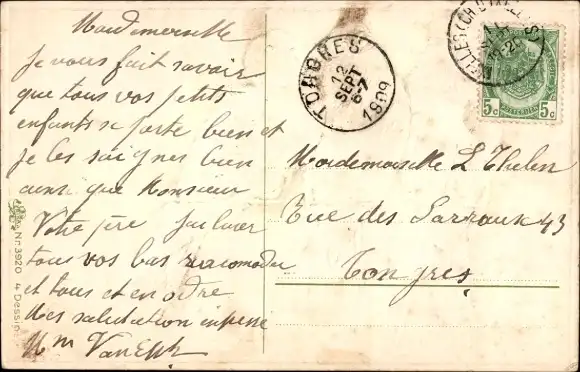 Mademoiselle
je vous fait savoir
que tous vos petits
enfants se porte bien et
je les soignes bien
ainsi que Monsieur
Votre père j'ai laver
tous vos bas racomoder
et tous et en ordre
Mes salutation
Mm Van
TONGRES
12
SEPT
6-7
1909
5c 5c
Mademoiselle L Thelen
Rue des Sarraux 43
Tongres
Nr. 3920 4 Dessin